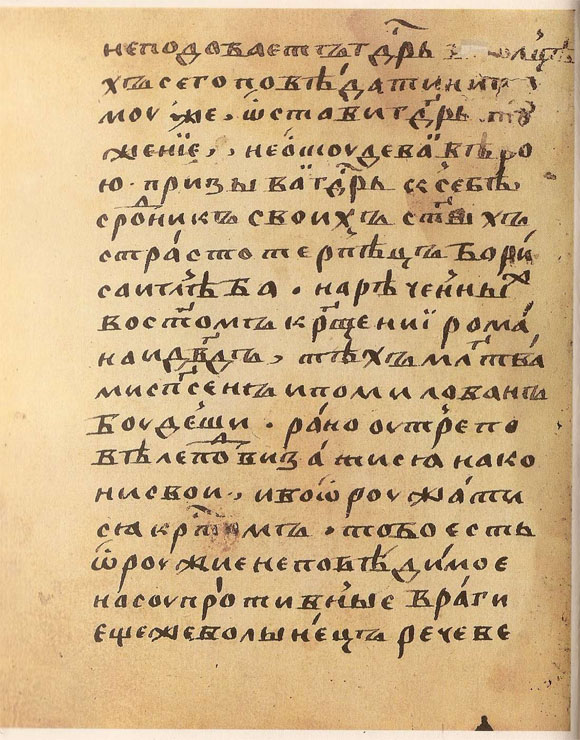 неподобаетъ г҃дрь
хъ сего повѣдати ни
моу же, ѡстави г҃дрь
жение, неѻмоудева вѣро
ю. призываи г҃дрь к себѣ
срⷣоникъ своихъ ст҃ыхъ
страстотерпѣцъ бори
са и глѣба. нареченныⷯ
во ст҃омъ кр҃щении рома
на и дв҃да, тѣхъ мл҃тва
ми сп҃сенъ и помилованъ
боудеши. рано оутре по
велепⷣо ви за тися на ко
ни свои, и воѡроужати
ся кр҃томъ. то бо есть
ѡроужие непобѣдимое
на соупротивные враги
еще же волынецъ рече ве